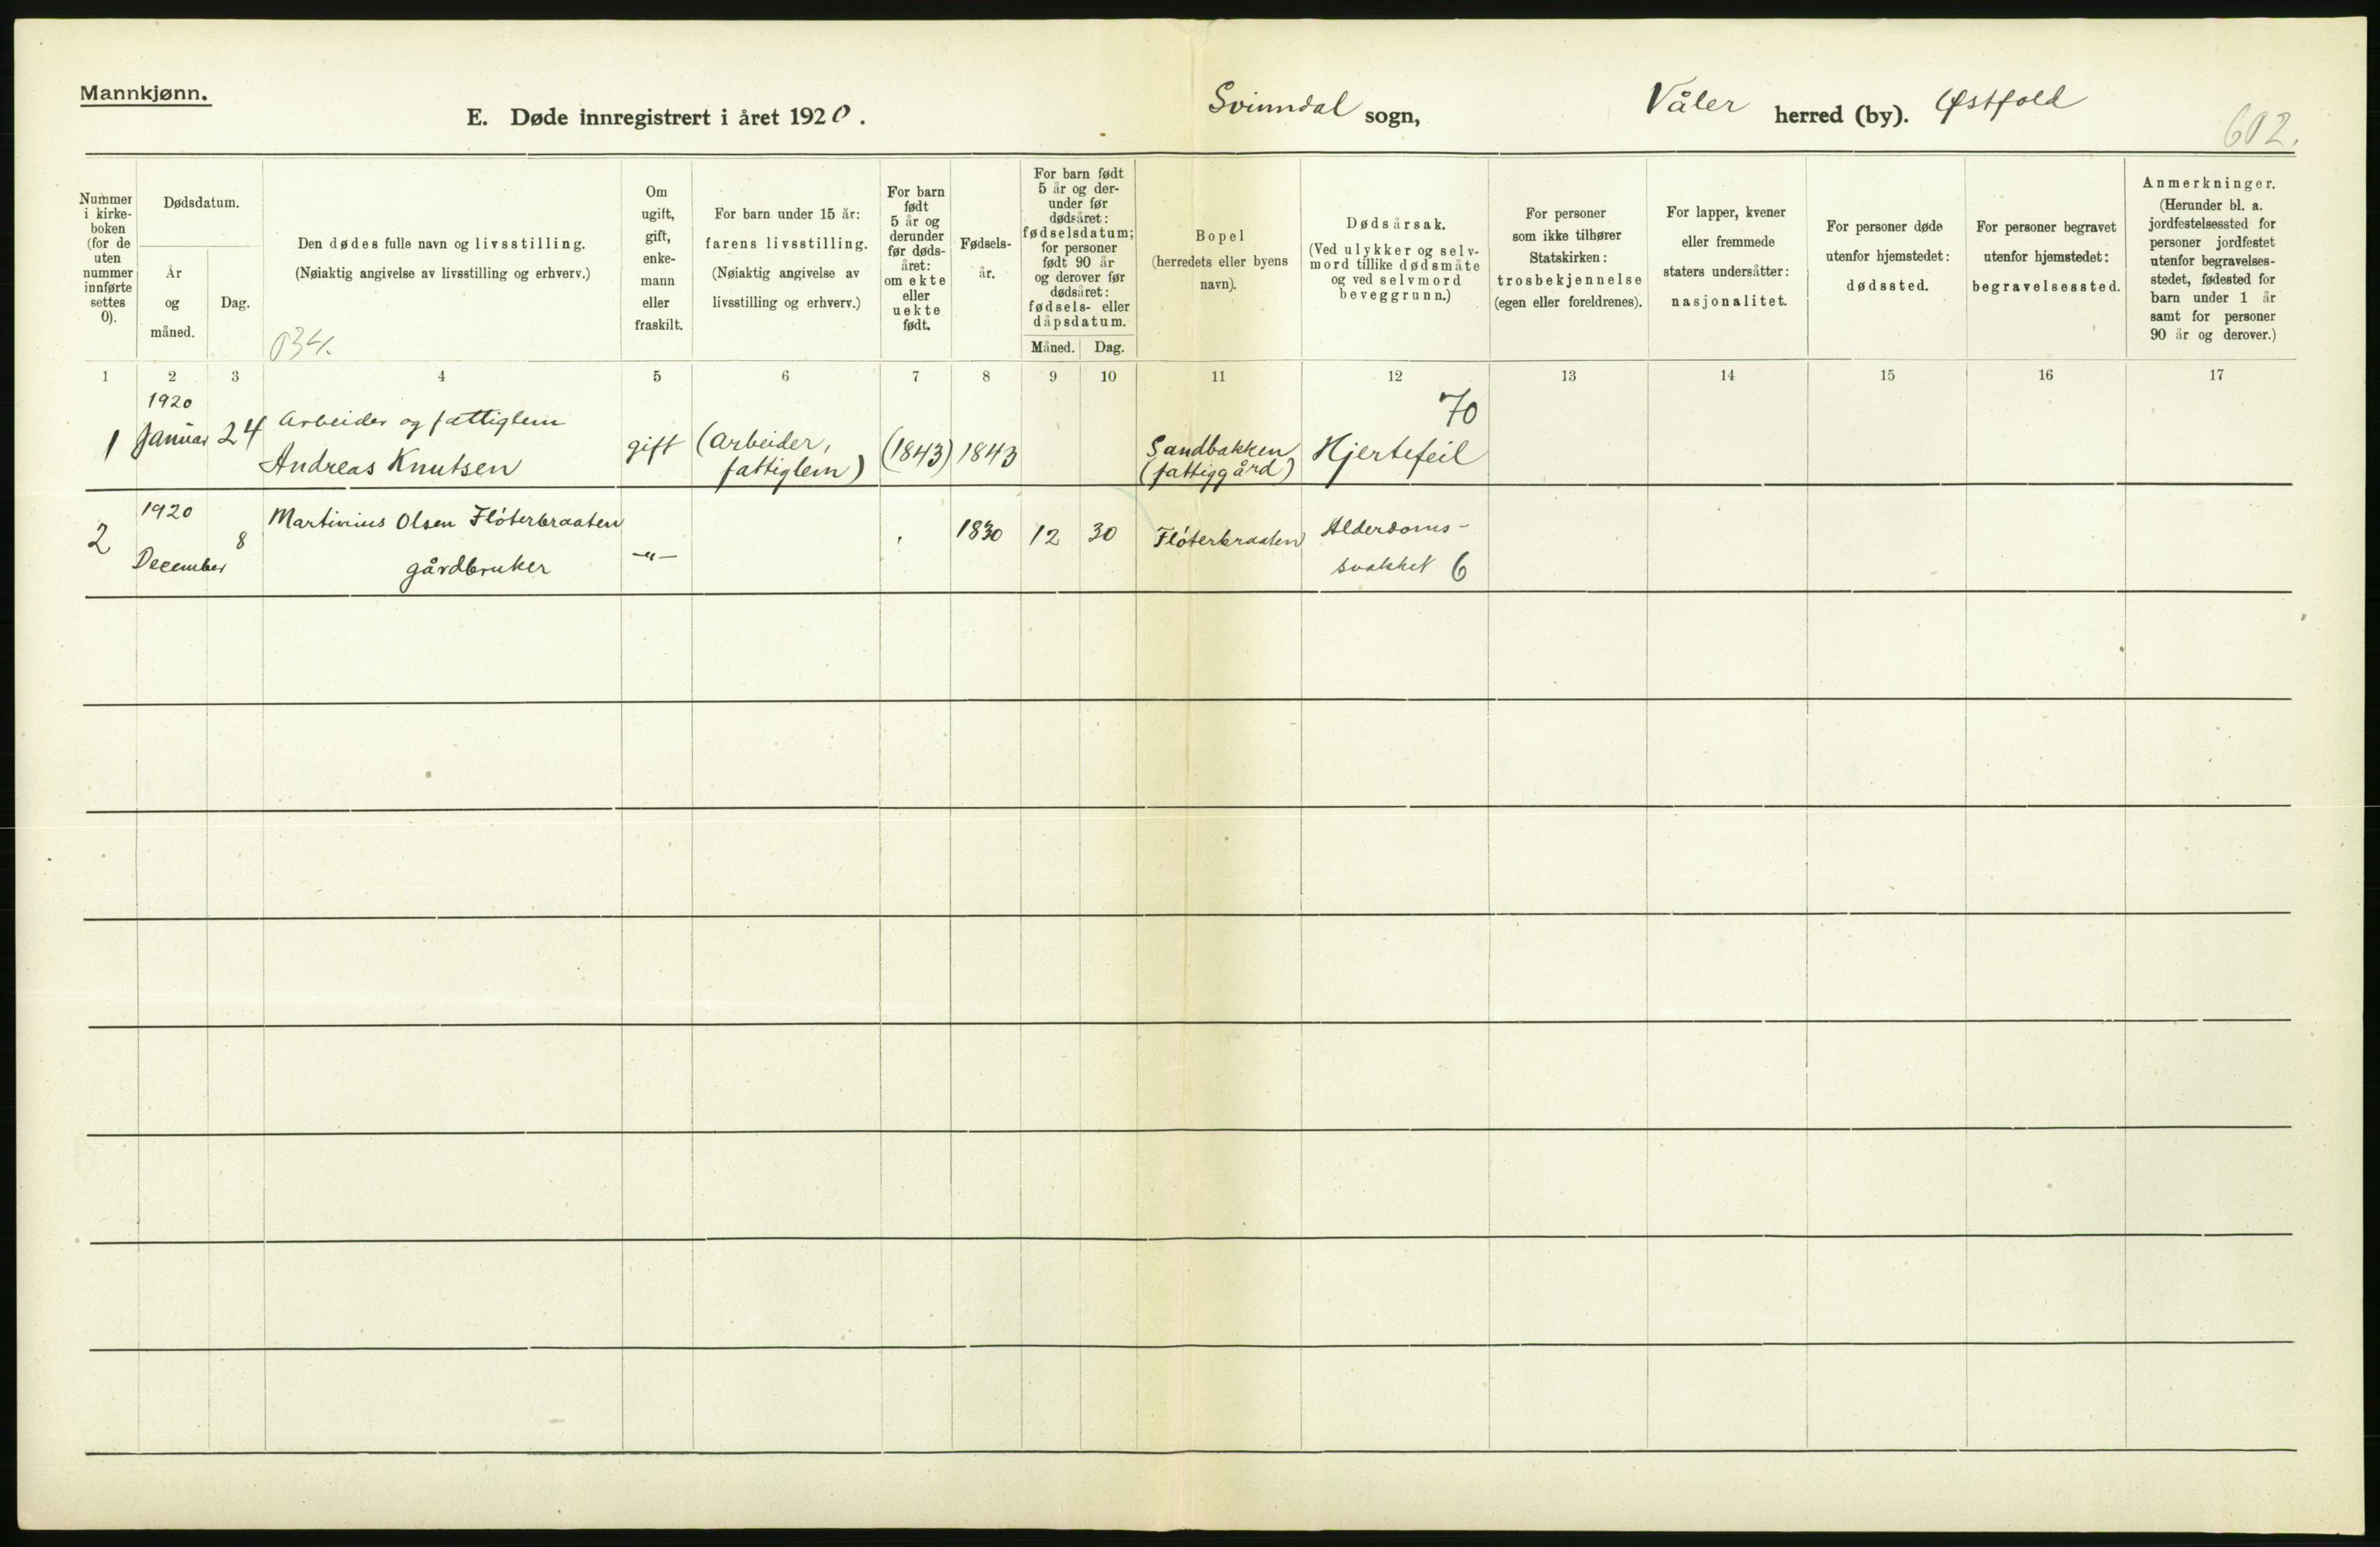 Mannkjønn.
E. Døde innregistrert i året 1920.
Svinndal sogn,
Våler herred (by). Østfold
602.
Nummer i kirke-boken (for de uten nummer innførte settes 0).
Dødsdatum.
År og måned.
Dag.
Den dødes fulle navn og livsstilling.
(Nøiaktig angivelse av livsstilling og erhverv.)
034.
Om ugift, gift, enke-mann eller fraskilt.
For barn under 15 år: farens livsstilling.
(Nøiaktig angivelse av livsstilling og erhverv.)
For barn født 5 år og derunder før døds-året: om ekte eller uekte født.
Fødsels-år.
For barn født 5 år og der-under før dødsåret: fødselsdatum; for personer født 90 år og derover før dødsåret: fødsels- eller dåpsdatum.
Måned. Dag.
Bopel (herredets eller byens navn).
Dødsårsak.
(Ved ulykker og selv-mord tillike dødsmåte og ved selvmord beveggrunn.)
For personer som ikke tilhører Statskirken: trosbekjennelse (egen eller foreldrenes).
For lapper, kvener eller fremmede staters undersåtter: nasjonalitet.
For personer døde utenfor hjemstedet: dødssted.
For personer begravet utenfor hjemstedet: begravelsessted.
Anmerkninger.
(Herunder bl. a. jordfestelsessted for personer jordfestet utenfor begravelses-stedet, fødested for barn under 1 år samt for personer 90 år og derover.)
1 2 3 4 5 6 7 8 9 10 11 12 13 14 15 16 17
1920 70
1 Januar 24 Arbeider og fattiglem gift (Arbeider, (1843) 1843 Sandbakken Hjertefeil
Andreas Knutsen fattiglem) (fattiggård)
1920
2 December 8 Martinius Olsen Flöterbraaten —"— 1830 12 30 Flöterbraaten Alderdoms-
gårdbruker svakhet 6